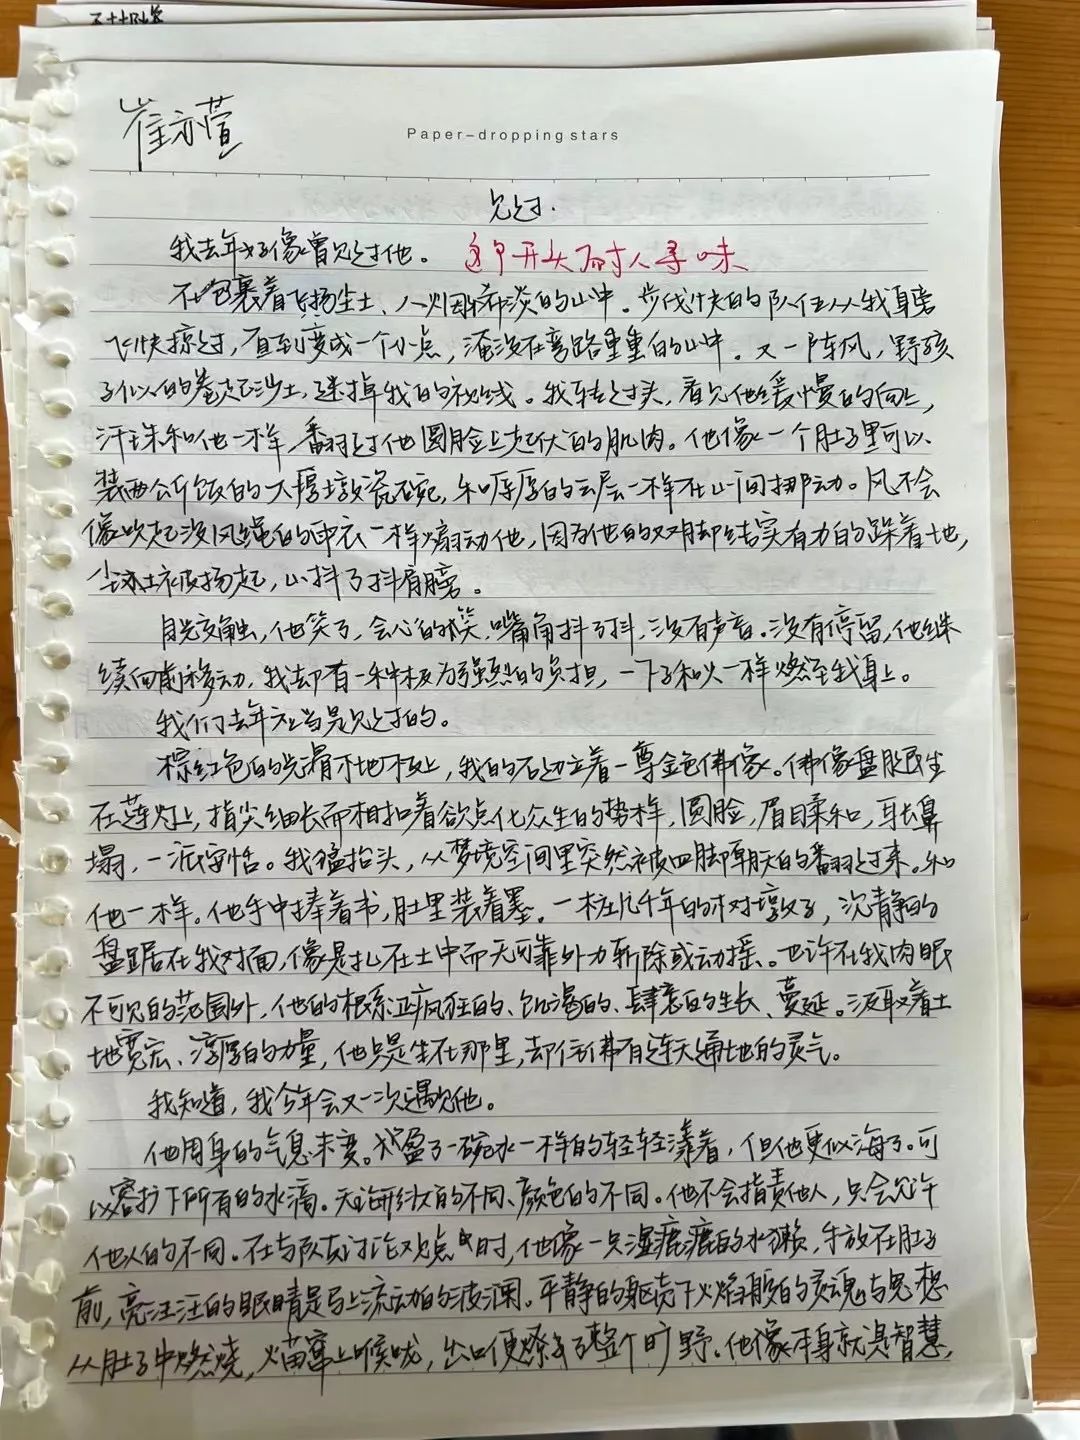 崔亦萱
Paper-dropping stars
见过.
我去年好像曾见过他。 这个开头耐人寻味
在包裹着飞扬尘土、人烟稀淡的山中。步伐快的队伍从我身旁
飞快掠过,直到变成一个小点,淹没在弯路重重的山中。又一阵风,野孩
子似的卷起沙土,迷掉我的视线。我转过头,看见他缓慢的向上,
汗珠和他一样,翻过他圆脸上起伏的肌肉。他像一个肚子里可以
装两公斤饭的大厚墩瓷碗,和厚厚的云层一样在山间挪动。风不会
像吹起没风绳的雨衣一样煽动他,因为他的双脚结实有力的踩着地,
尘土被扬起,小抖了抖肩膀。
目光交触,他笑了,会心的笑,嘴角抖了抖,没有声音。没有停留,他继
续向前移动,我却有一种极为强烈的负担,一下子和火一样燃至我身上。
我们去年应当是见过的。
棕红色的光滑木地板上,我的右边立着一尊金色佛像。佛像盘腿坐
在莲灯上,指尖细长而相扣着欲点化众生的势样,圆脸,眉目柔和,耳长鼻
塌,一派宁恬。我猛抬头,从梦境空间里突然被四脚朝天的翻过来。和
他一样。他手中捧着书,肚里装着墨。一桩几千年的木对墩子,沉静的
盘踞在我对面,像是扎在土中而无可靠外力斩除或动摇。也许在我肉眼
不可见的范围外,他的根系正疯狂的、饥渴的、肆意的生长、蔓延。汲取着土
地宽宏、淳厚的力量,他只是坐在那里,却仿佛有连天通地的灵气。
我知道,我今年会又一次遇见他。
他周身的气息未变。水盈了一碗水一样的轻轻漾着,但他更似海了。可
以容护下所有的水滴。无论纹的不同、颜色的不同。他不会指责他人,只会允许
他人的不同。在与队友讨论观点时,他像一只湿漉漉的水獭,手放在肚子
前,亮汪汪的眼睛是马上流动的波澜。平静的躯壳下火焰般的灵魂与思想
从肚子中燃烧,火苗窜上喉咙,出口便燎了整个旷野。他像本身就是智慧,